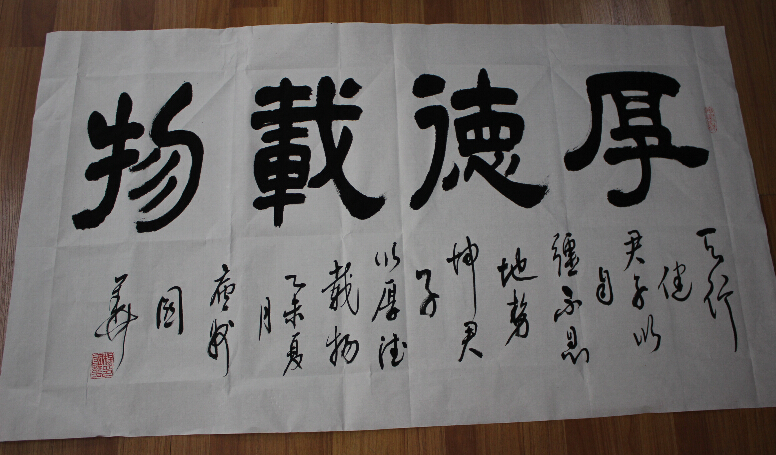 厚徳載物
天行
健
君子以
自
彊不息
地勢
坤君
子
以厚德
載物
乙未夏
月